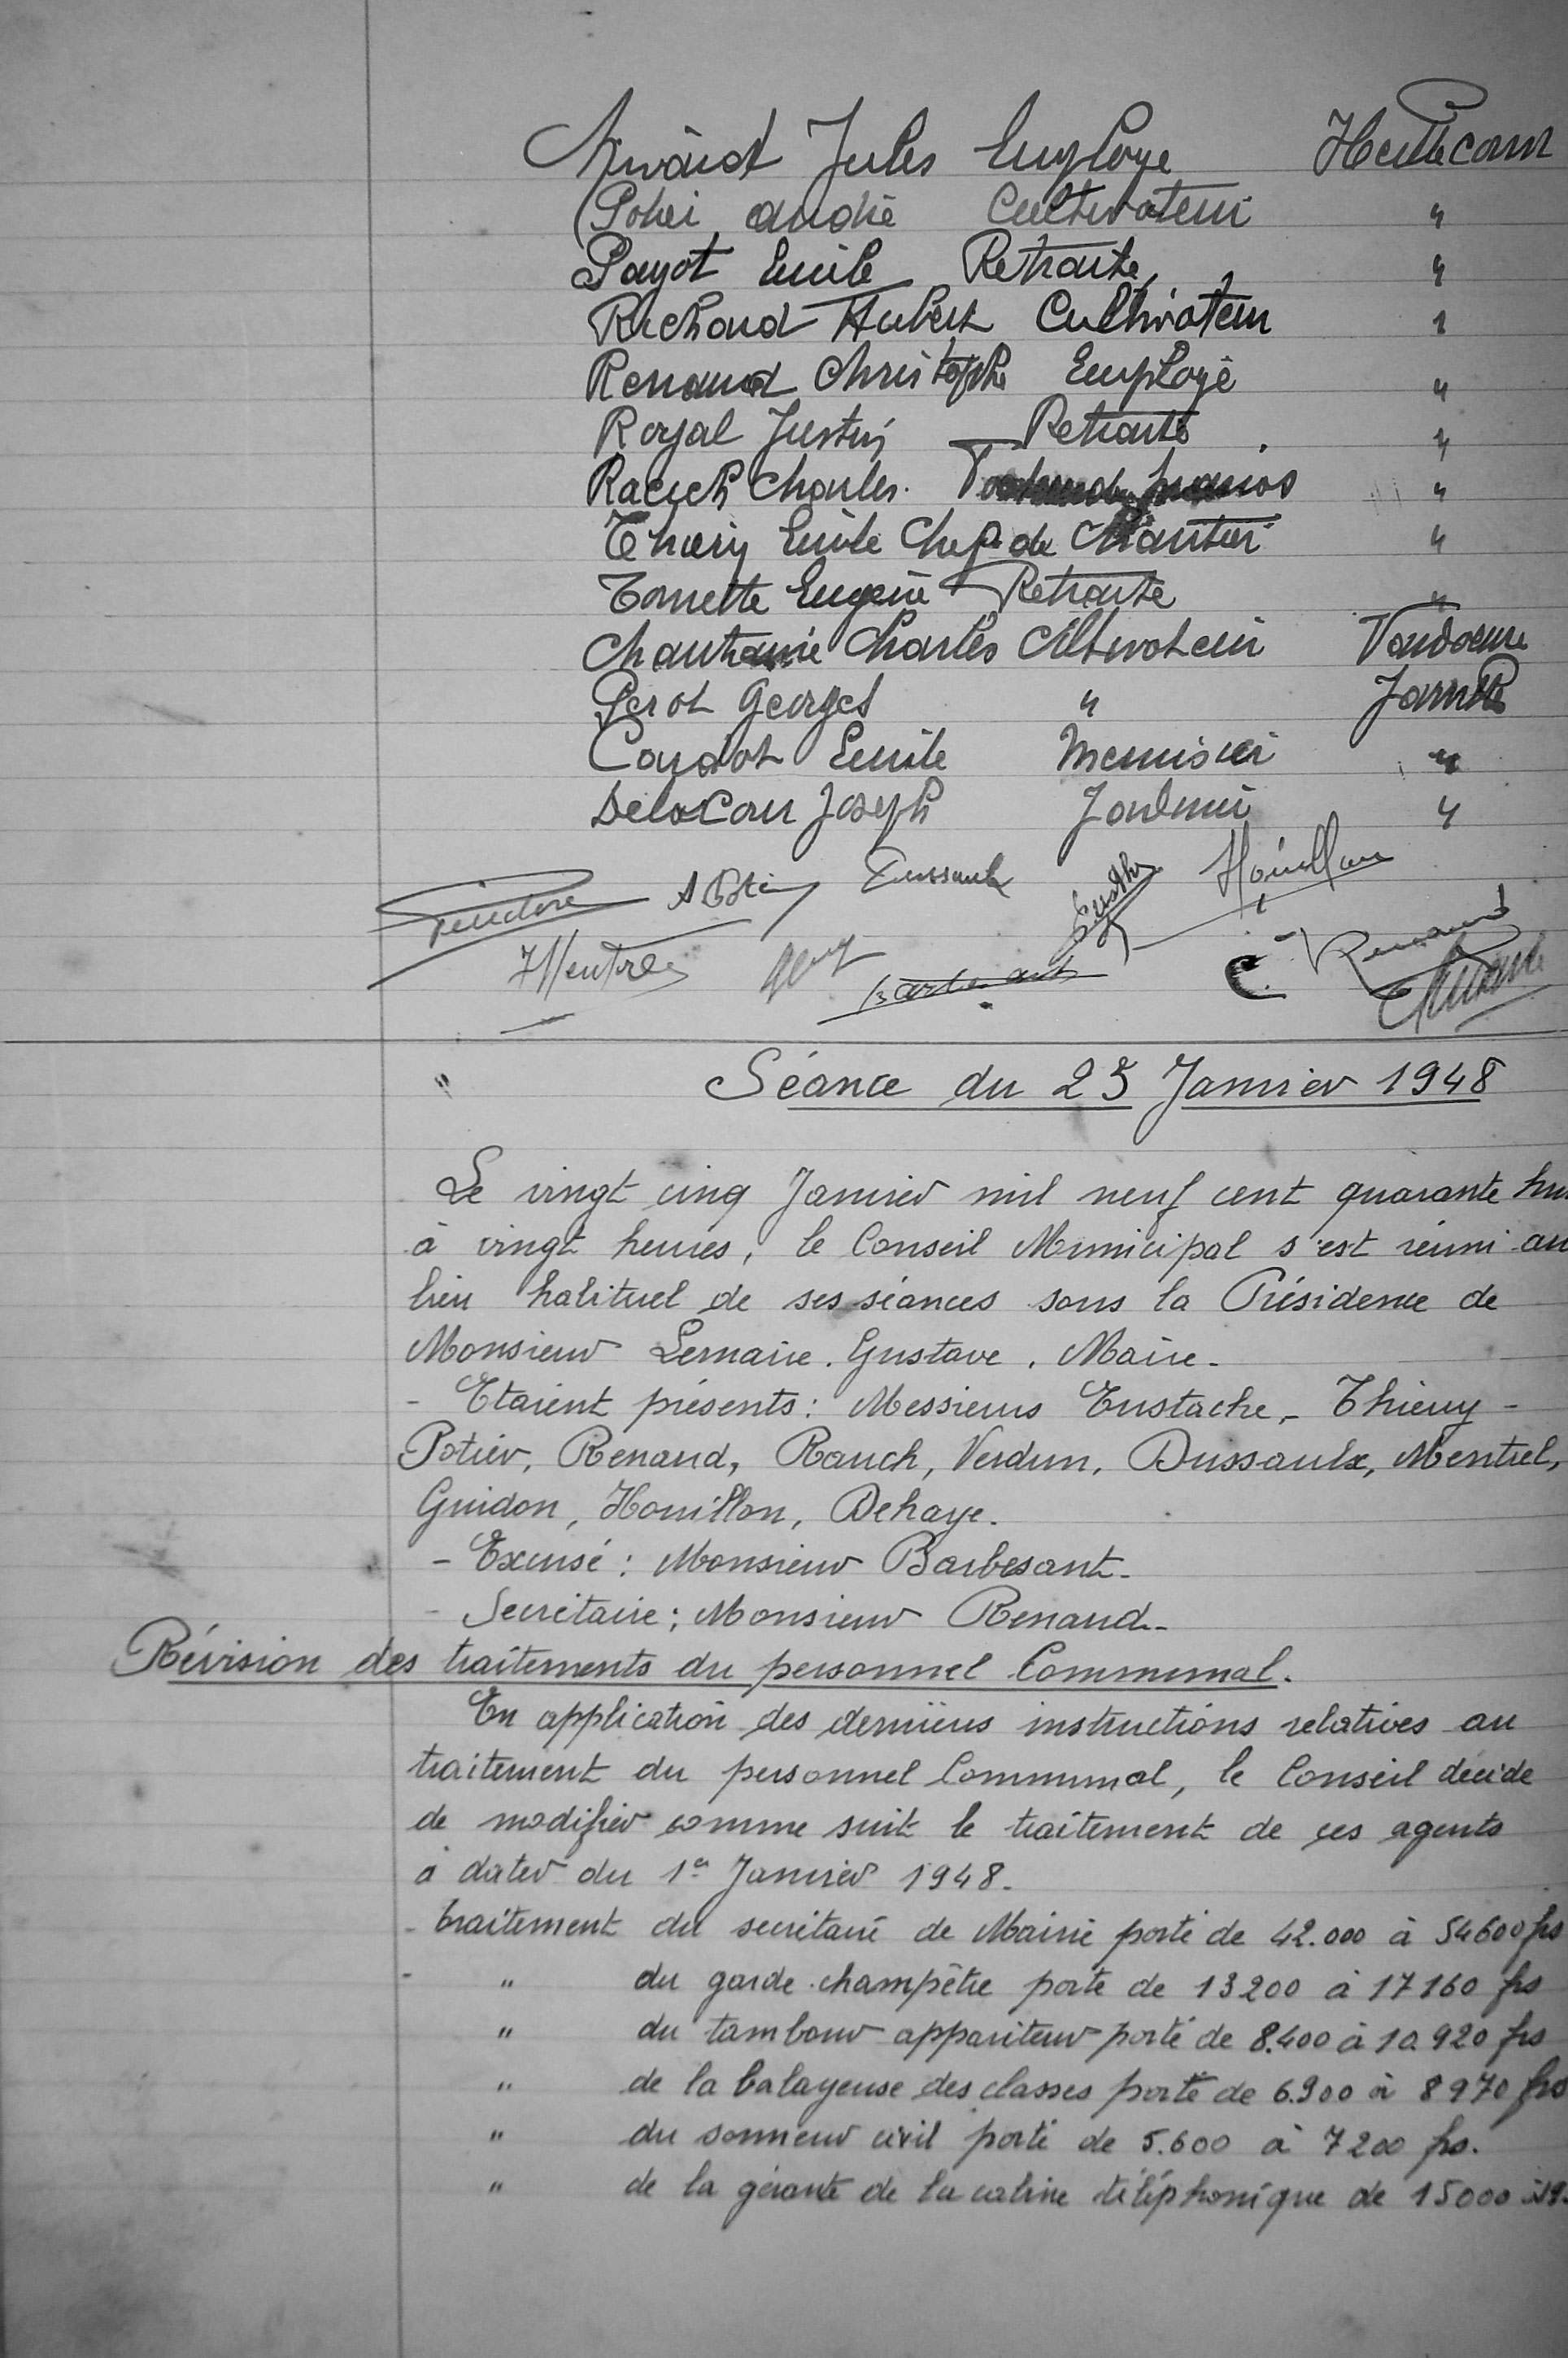 Jules Employe Heillecourt
Potier André Cultivateur "
Payot Emile Retraité "
Richard Hubert Cultivateur "
Renaud Christophe Employé "
Royal Justin Retraité "
Rauch Charles. "
Thiery Emile Chef de Chantier "
Tonnette Eugène Retraité "
Charles Cultivateur Vandoeuvre
Perot Georges " Jarville
Emile Menuisier "
Joseph "
A Potier Dussaulx Houillon
Barbesant C. Renaud
Séance du 25 Janvier 1948
Le vingt cinq Janvier mil neuf cent quarante hui
à vingt heures, le Conseil Municipal s'est réuni au
lieu habituel de ses séances sous la Présidence de
Monsieur Lemaire. Gustave. Maire.
- Etaient présents: Messieurs Eustache, - Thiéry -
Potier, Renaud, Rauch, Verdun, Dussaulx, Mentrel,
Guidon, Houillon, Dehaye.
- Excusé: Monsieur Barbesant.
- Secrétaire: Monsieur Renaud.
Révision des traitements du personnel Communal.
En application des dernières instructions relatives au
traitement du personnel Communal, le Conseil décide
de modifier comme suit le traitement de ces agents
à dater du 1er Janvier 1948.
- traitement du secrétaire de Mairie porté de 42.000 à 54600 frs
- " du garde champêtre porté de 13200 à 17160 frs
" du tambour appariteur porté de 8.400 à 10.920 frs
" de la balayeuse des classes porté de 6.900 à 8970 frs
" du sonneur civil porté de 5.600 à 7200 frs.
" de la gérante de la cabine téléphonique de 15000 à 19.